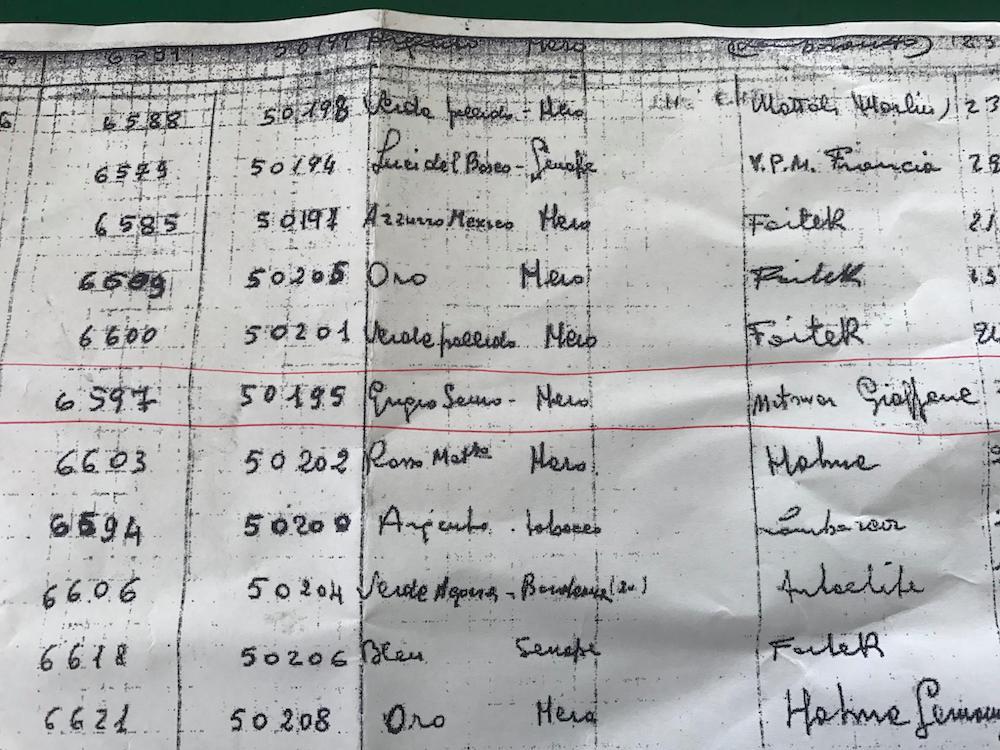 6591 50199 Argento Nero
6588 50198 Verde pallido - Nero 23
6579 50194 Luci del Bosco - Senape V.P.M. Francia 28
6585 50197 Azzurro Mexico Nero Foitek 21
6609 50205 Oro Nero Foitek 13
6600 50201 Verde pallido Nero Foitek
6597 50195 Grigio Scuro - Nero Mitsuwa Giappone
6603 50202 Rosso Nero Hahne
6594 50200 Argento - tabacco
6606 50204 Verde Acqua - Autoelite
6618 50206 Bleu Senape Foitek
6621 50208 Oro Nero Hahne